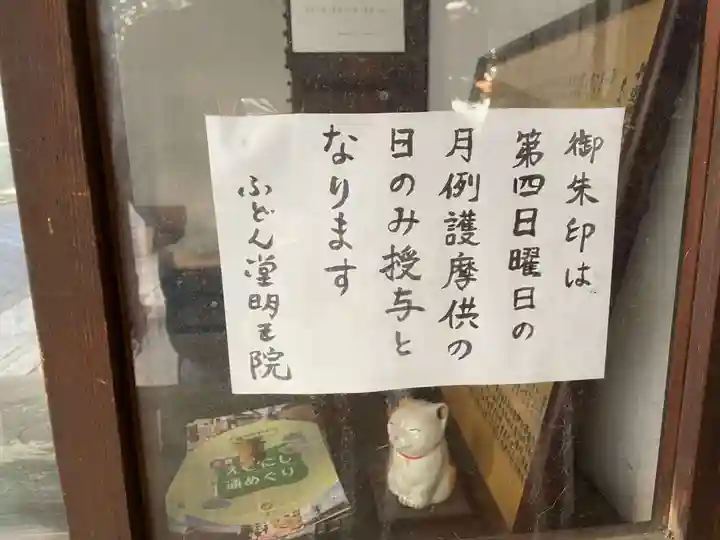 御朱印は
第四日曜日の
月例護摩供の
日のみ授与と
なります
ふどん堂明王院
通めぐり